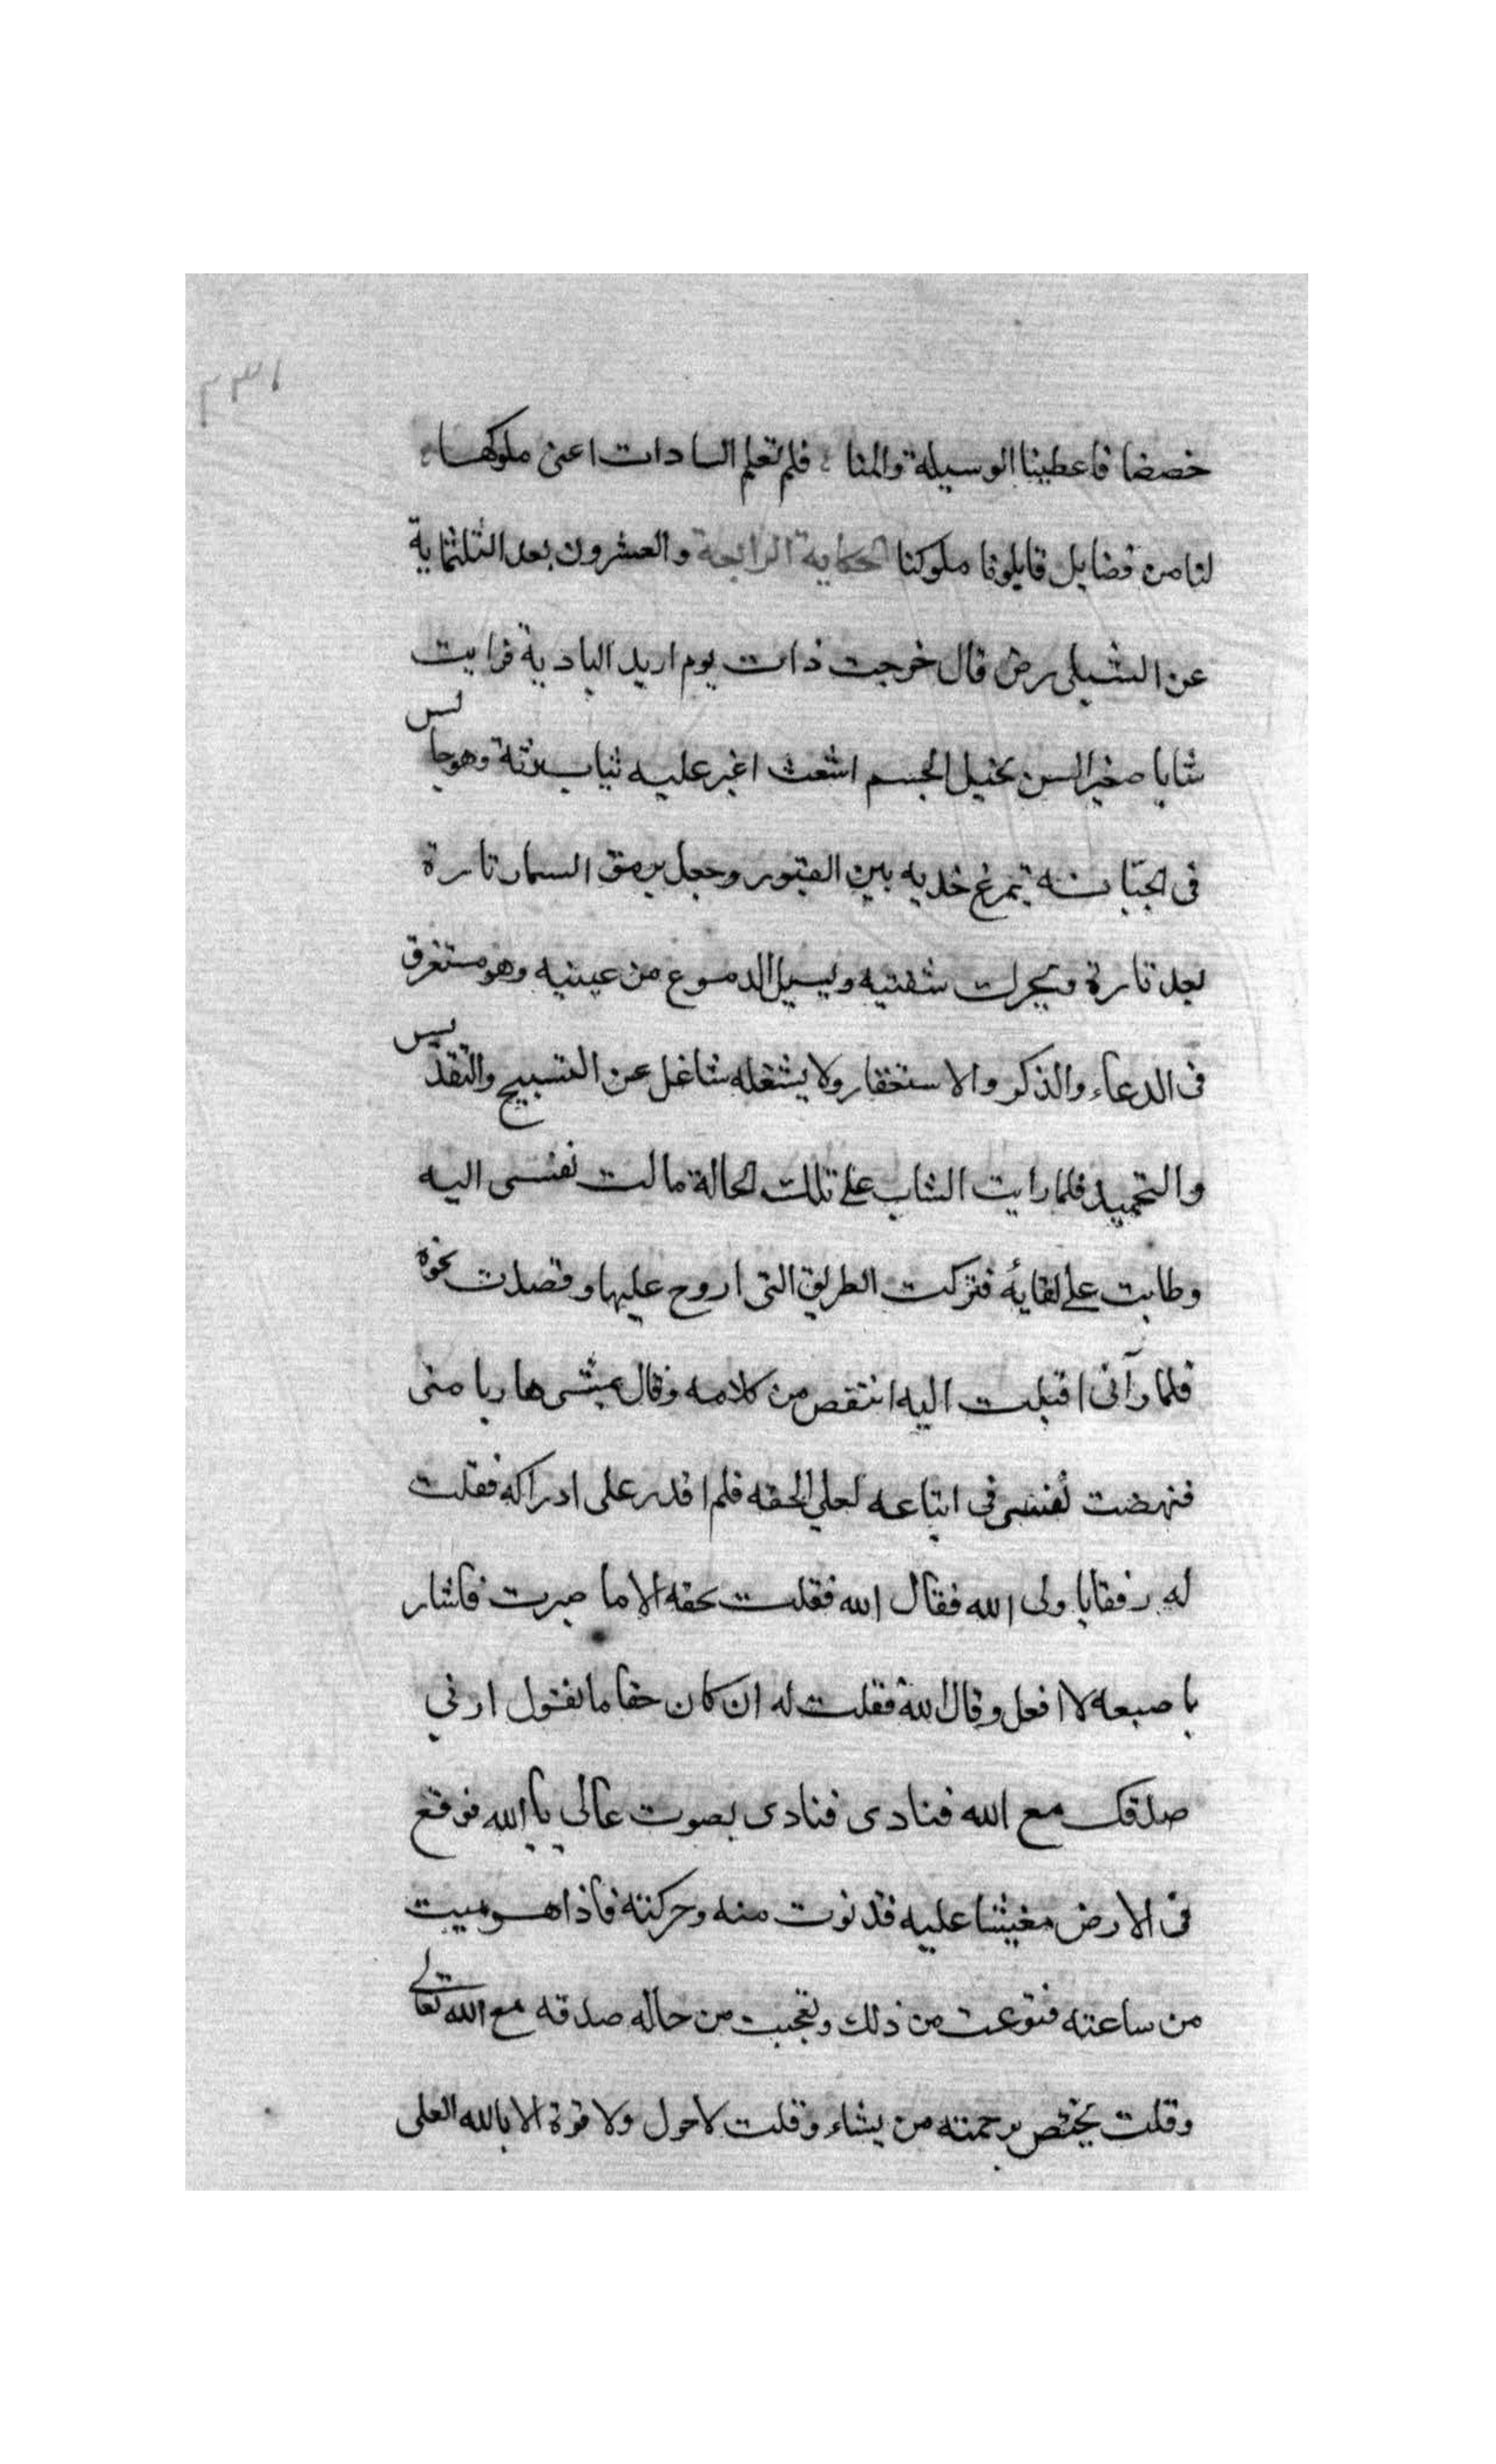 ٢٣١
خصصنا فاعطينا الوسيلة والمنا فلم تعلم السادات اعنى ملوكها
لنا من فضايل قايلونا ملوكنا الحكاية الرابعة والعشرون بعد الثلثماية
عن الشبلى رض قال خرجت ذات يوم اريد البادية فرايت
شابا صغير السن نحيل الجسم اشعث اغبر عليه ثياب رثة وهو جالس
فى الجبانة يمرغ خديه بين القبور وجعل يرمق السماء تارة
بعد تارة ويحرك شفتيه ويسيل الدموع من عينيه وهو مستغرق
فى الدعاء والذكر والاستغفار ولا يشغله شاغل عن التسبيح والتقديس
والتحميد فلما رايت الشاب على تلك الحالة مالت نفسى اليه
وطابت على لقايه فتركت الطريق التى اروح عليها وقصدت نحوه
فلما رآنى اقبلت اليه انتقص من كلامه وقال يمشى هاربا منى
فنهضت نفسى فى اتباعه لعلى الحقه فلم اقدر على ادراكه فقلت
له رفقا يا ولى الله فقال الله فقلت بحقه الا ما صبرت فاشار
باصبعه لا افعل وقال الله فقلت له ان كان حقا ما تقول ارنى
صدقك مع الله فنادى فنادى بصوت عالى يا الله فوقع
فى الارض مغيشا عليه فدنوت منه وحركته فاذا هو ميت
من ساعته فتوعت من ذلك وتعجبت من حاله صدقه مع الله تعالى
وقلت يختص برحمته من يشاء وقلت لا حول ولا قوة الا بالله العلى